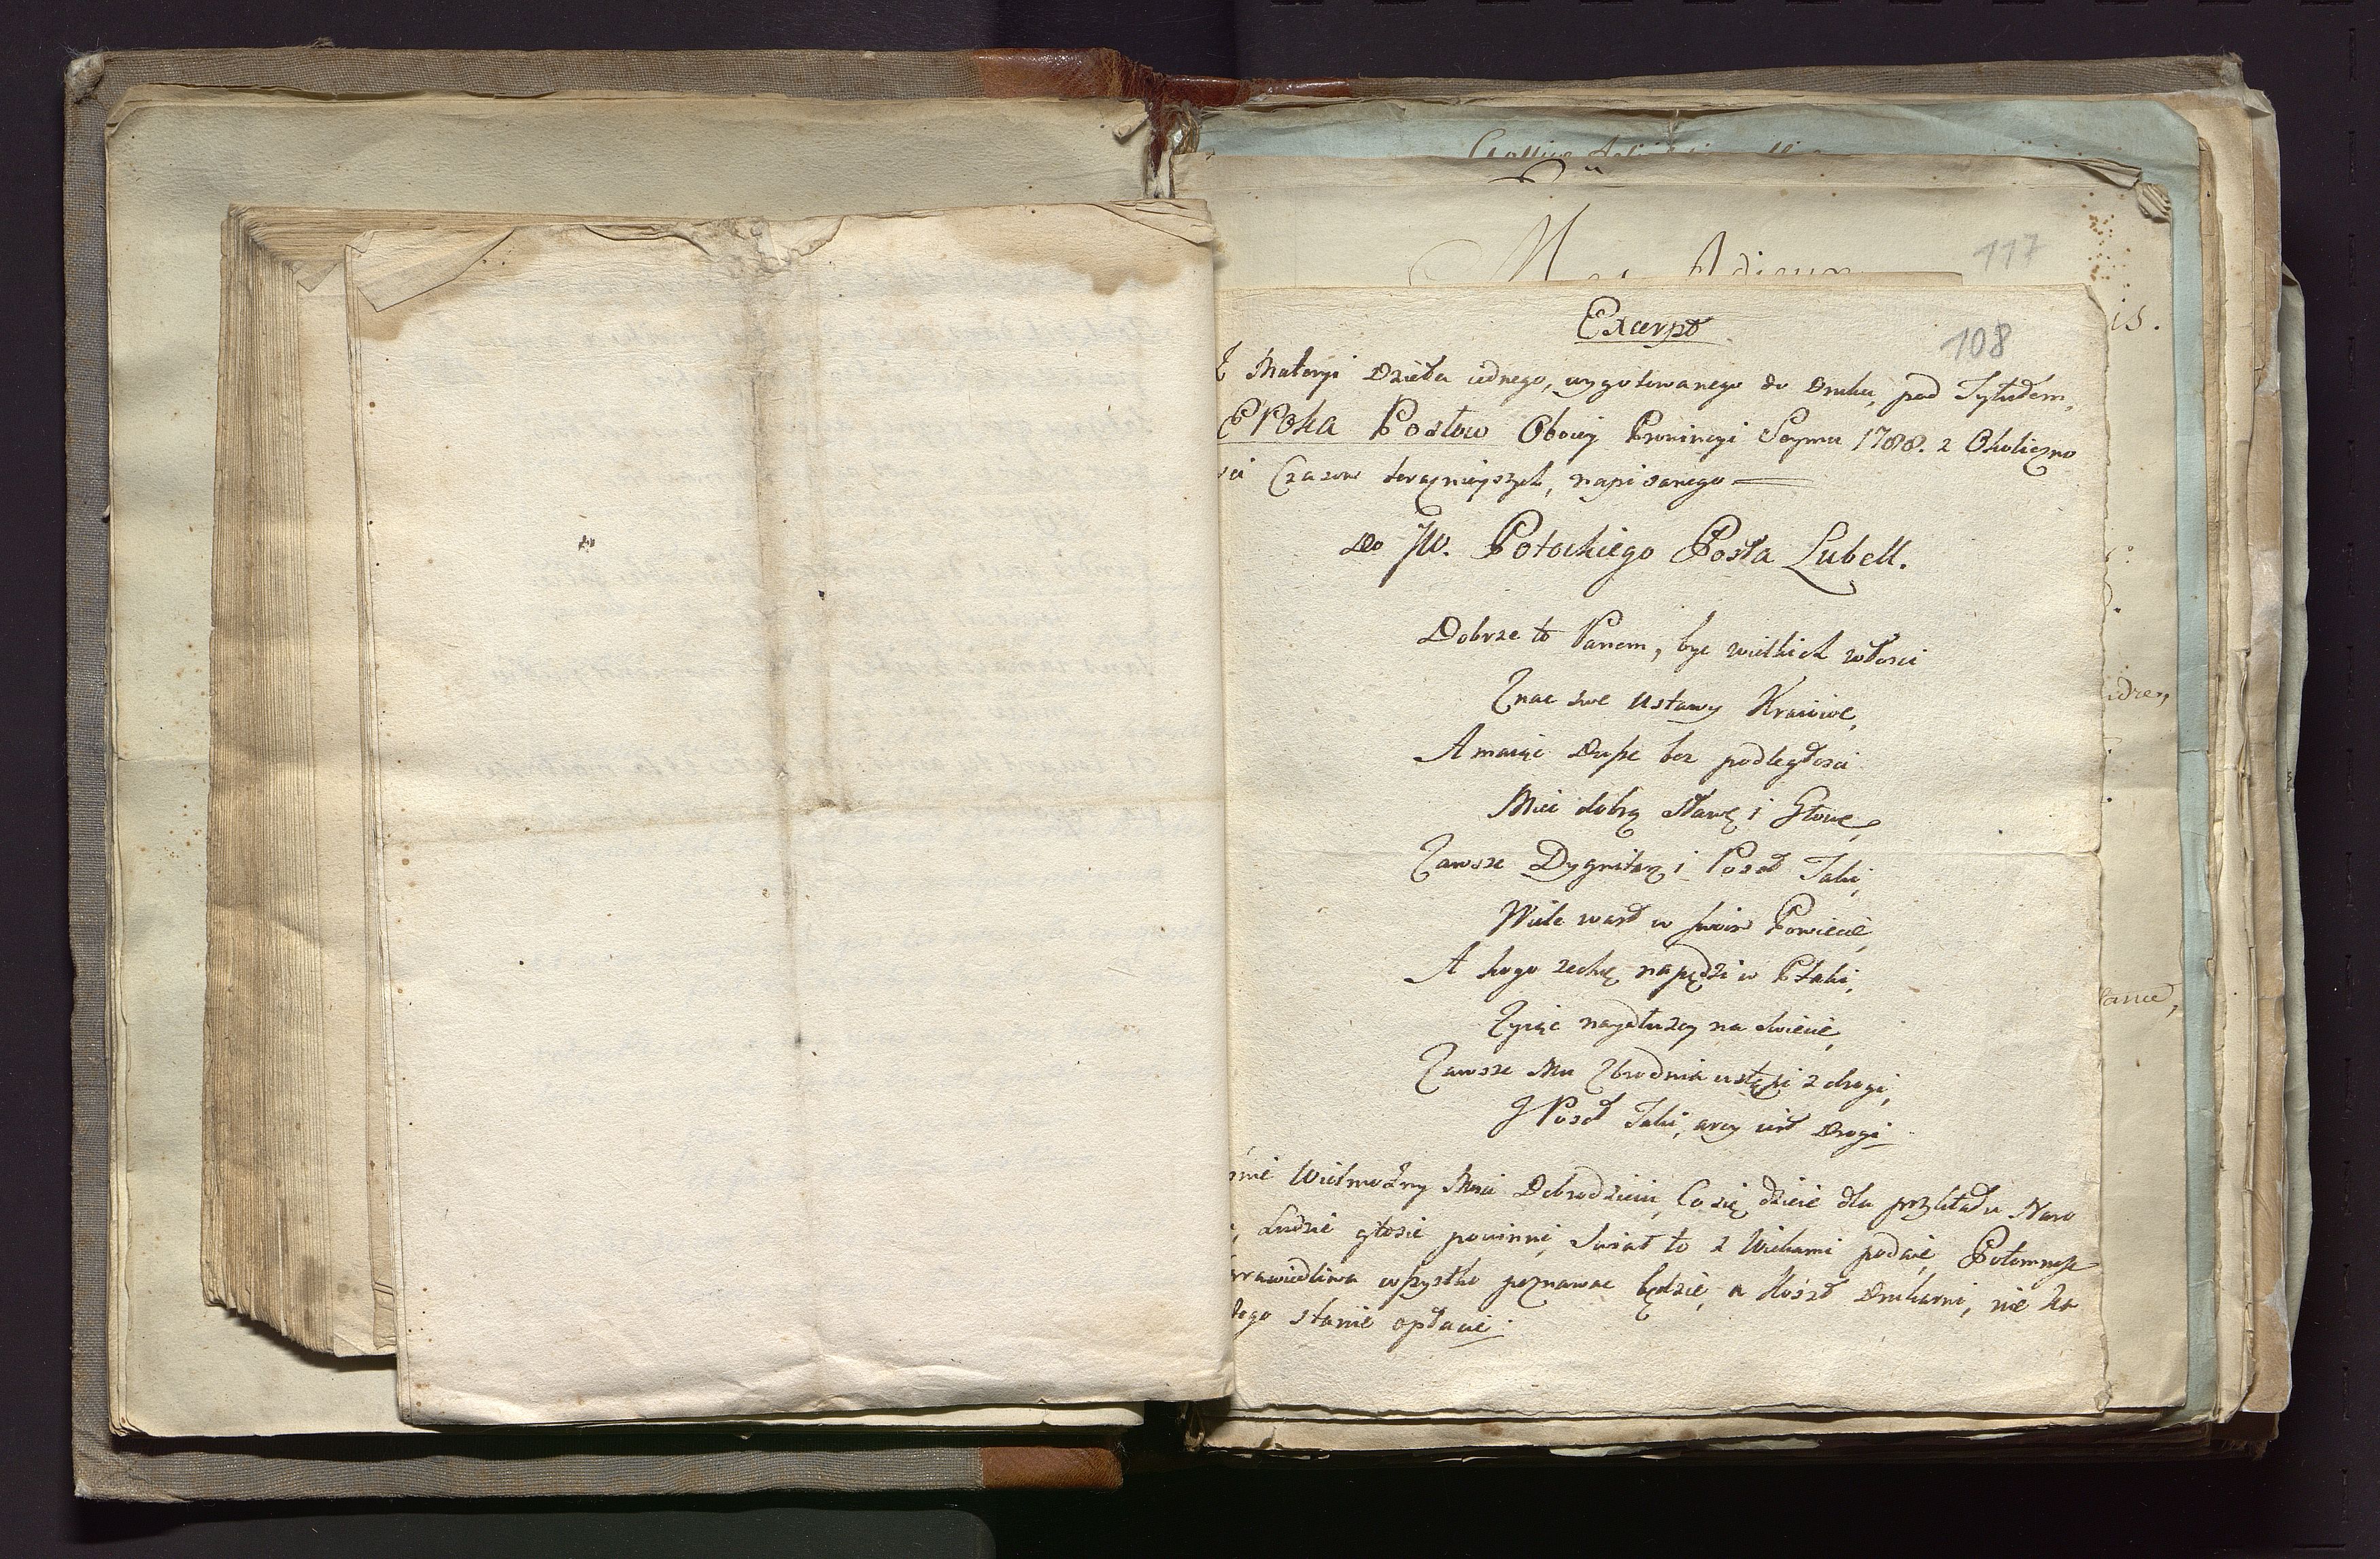 117
108
Excerpt
Z Materyi Dzieła iednego, wygotowanego do Druku, pod Tytułem,
EPoka Posłow Oboiey Prowincyi Seymu 1788. z Okoliczno
ści Czasow teraznieyszych, napisanego
do JW. Potockiego Posła Lubell.
Dobrze to Panem, byc wielkich włosci
Znac swe Ustawy Kraiowe,
A maiąc Duszę bez podległosci
Miec dobrą sławę i Głowę,
Zawsze Dygnitarz i Poseł Taki,
Wiele wart w swoim Powiecie,
A kogo zechcę napędzi w Ptaki,
Zyiąc naydłużey na swiecie,
Zawsze Mu Zbrodnia ustąpi z drogi,
J Poseł Taki, arcy iest Drogi
Wielmożny Mosci Dobrodzieiu, Co się dzieie dla przykładu Naro
Ludzie głosić powinni, Swiat to z Wiekami podaie, Potomnosc
sprawiedliwa wszystko poznawac będzie, a Koszt Drukarni, nie ka
stanie opłacic